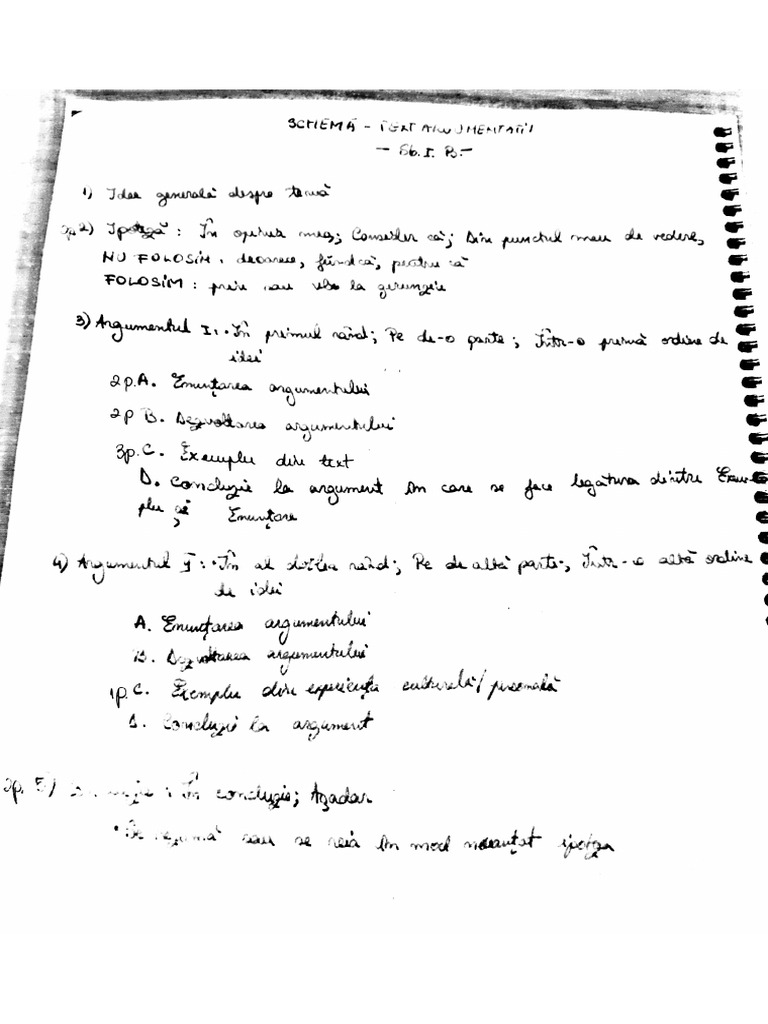 SCHEMĂ - TEXT ARGUMENTATIV
- Sb. I. B. -
1) Idee generală despre temă
2p. 2) Ipoteză : În opinia mea; Consider că; Din punctul meu de vedere,
NU FOLOSIM : deoarece, fiindcă, pentru că
FOLOSIM : prin sau vb la gerunziu
3) Argumentul I: • În primul rând; Pe de-o parte; Într-o primă ordine de
idei
2p. A. Enunțarea argumentului
2p B. Dezvoltarea argumentului
3p. C. Exemplu din text
D. Concluzie la argument în care se face legătura dintre Exem-
plu și Enunțare
4) Argumentul II: • În al doilea rând; Pe de altă parte; Într-o altă ordine
de idei
A. Enunțarea argumentului
B. Dezvoltarea argumentului
1p. C. Exemplu din experiența culturală/personală
D. Concluzie la argument
2p. 5) Concluzie : În concluzie; Așadar
• Se rezumă sau se reia în mod nuanțat ipoteza